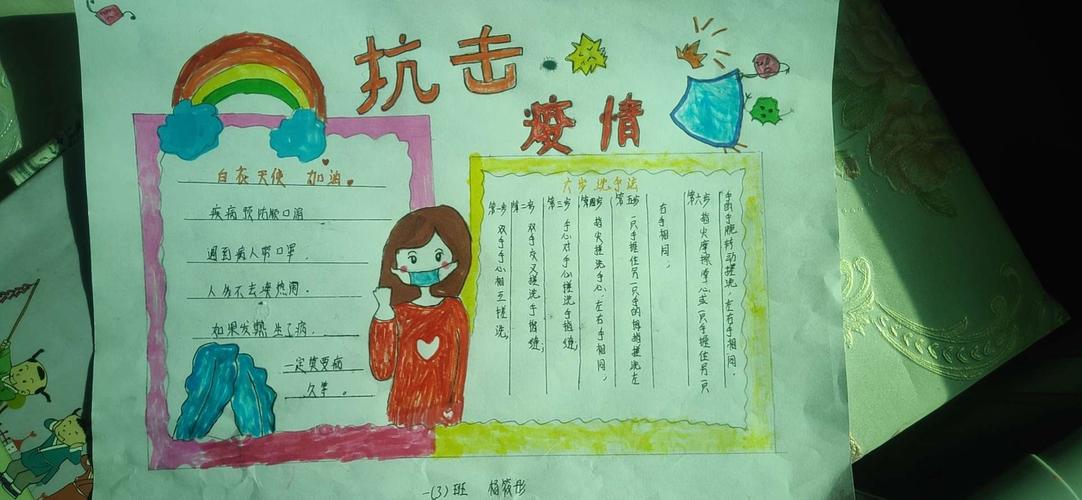 抗击
疫情
白衣天使 加油
疾病预防顺口溜
遇到病人带口罩。
人多不去凑热闹。
如果发热生了病。
一定
六步洗手法
第一步 双手手心相互搓洗。
第二步 双手交叉搓洗手指缝;
第三步 手心对手心搓洗手指缝;
第四步 指尖搓洗手心、左右手相同;
第五步 一只手握住另一只手的拇指搓洗左
右手相同;
第六步 指尖摩擦掌心或一只手握住另一只
手的手腕转动搓洗,左右手相同。
一(3)班 杨筱彤